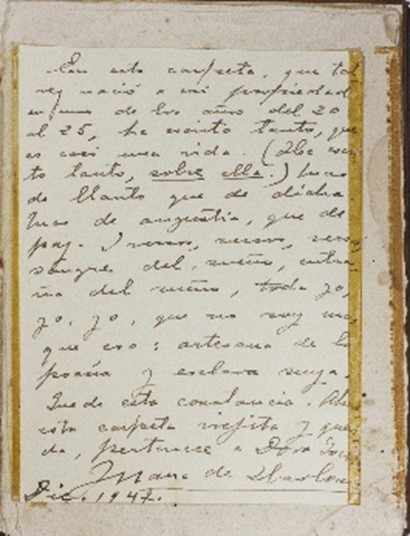 En esta carpeta, que tal
vez nació a mi propiedad
en uno de los años del 20
al 25, he escrito tanto, que
es casi una vida. (He escri
to tanto, sobre ella.) Mas
de llanto que de dicha.
Mas de angustia, que de
paz. Y versos, versos, versos,
sangre del sueño, entra
ña del sueño, toda yo,
yo, yo, que no soy mas
que eso: artesana de la
poesía y esclava suya.
Quede esta constancia.
esta carpeta viejita y que
da, pertenece a
Juana de Ibarbourou
Dic. 1947.